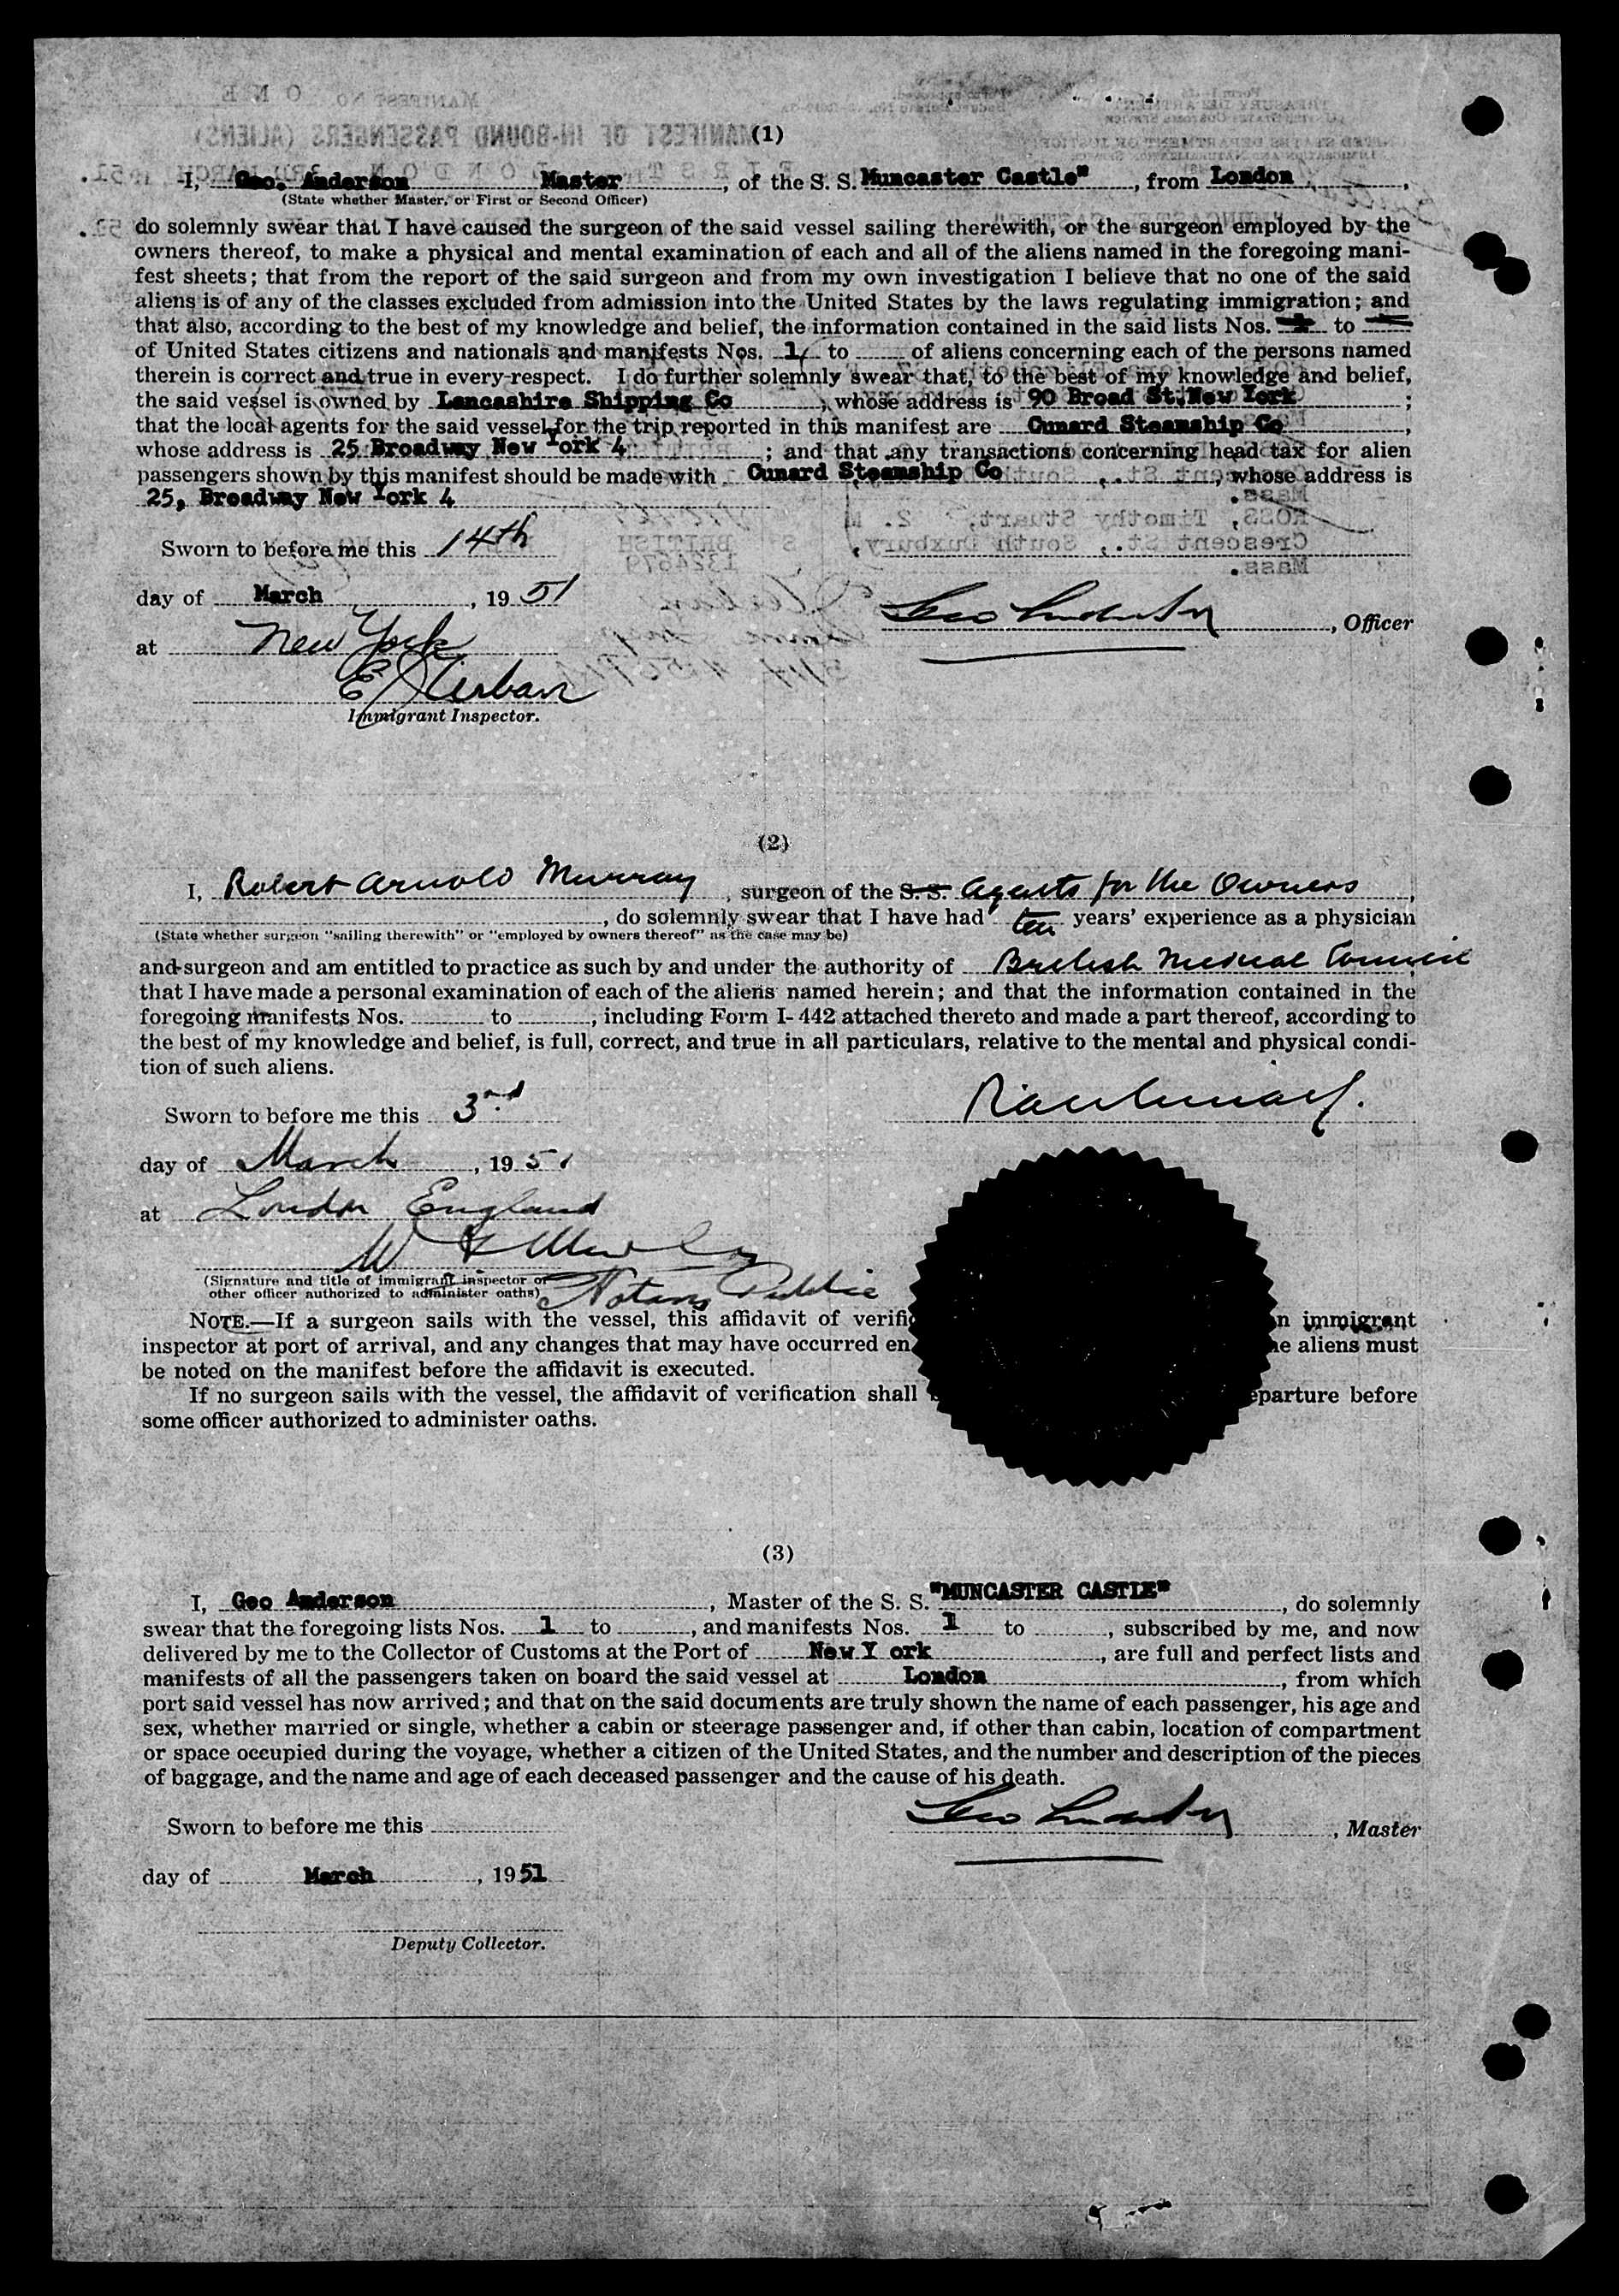 (1)
I, Geo. Anderson Master, of the S. S. Muncaster Castle", from London,
(State whether Master, or First or Second Officer)
do solemnly swear that I have caused the surgeon of the said vessel sailing therewith, or the surgeon employed by the
owners thereof, to make a physical and mental examination of each and all of the aliens named in the foregoing mani-
fest sheets; that from the report of the said surgeon and from my own investigation I believe that no one of the said
aliens is of any of the classes excluded from admission into the United States by the laws regulating immigration; and
that also, according to the best of my knowledge and belief, the information contained in the said lists Nos. to
of United States citizens and nationals and manifests Nos. 1 to of aliens concerning each of the persons named
therein is correct and true in every respect. I do further solemnly swear that, to the best of my knowledge and belief,
the said vessel is owned by Lancashire Shipping Co, whose address is 90 Broad St. New York;
that the local agents for the said vessel for the trip reported in this manifest are Cunard Steamship Co,
whose address is 25 Broadway New York 4; and that any transactions concerning head tax for alien
passengers shown by this manifest should be made with Cunard Steamship Co, whose address is
25, Broadway New York 4
Sworn to before me this 14th
day of March, 1951
Officer
at New York
Immigrant Inspector.
(2)
I, Robert Arnold Murray, surgeon of the S. S. Agents for the Owners,
, do solemnly swear that I have had ten years' experience as a physician
(State whether surgeon "sailing therewith" or "employed by owners thereof" as the case may be)
and surgeon and am entitled to practice as such by and under the authority of British Medical Council
that I have made a personal examination of each of the aliens named herein; and that the information contained in the
foregoing manifests Nos. to , including Form I-442 attached thereto and made a part thereof, according to
the best of my knowledge and belief, is full, correct, and true in all particulars, relative to the mental and physical condi-
tion of such aliens.
Sworn to before me this 3rd
day of March, 1951
at London England
(Signature and title of immigrant inspector or
other officer authorized to administer oaths) Notary Public
NOTE.—If a surgeon sails with the vessel, this affidavit of verific n immigrant
inspector at port of arrival, and any changes that may have occurred en he aliens must
be noted on the manifest before the affidavit is executed.
If no surgeon sails with the vessel, the affidavit of verification shall eparture before
some officer authorized to administer oaths.
(3)
I, Geo Anderson, Master of the S. S. "MUNCASTER CASTLE", do solemnly
swear that the foregoing lists Nos. 1 to , and manifests Nos. 1 to , subscribed by me, and now
delivered by me to the Collector of Customs at the Port of New Y ork, are full and perfect lists and
manifests of all the passengers taken on board the said vessel at London, from which
port said vessel has now arrived; and that on the said documents are truly shown the name of each passenger, his age and
sex, whether married or single, whether a cabin or steerage passenger and, if other than cabin, location of compartment
or space occupied during the voyage, whether a citizen of the United States, and the number and description of the pieces
of baggage, and the name and age of each deceased passenger and the cause of his death.
Sworn to before me this
Master
day of March, 1951
Deputy Collector.